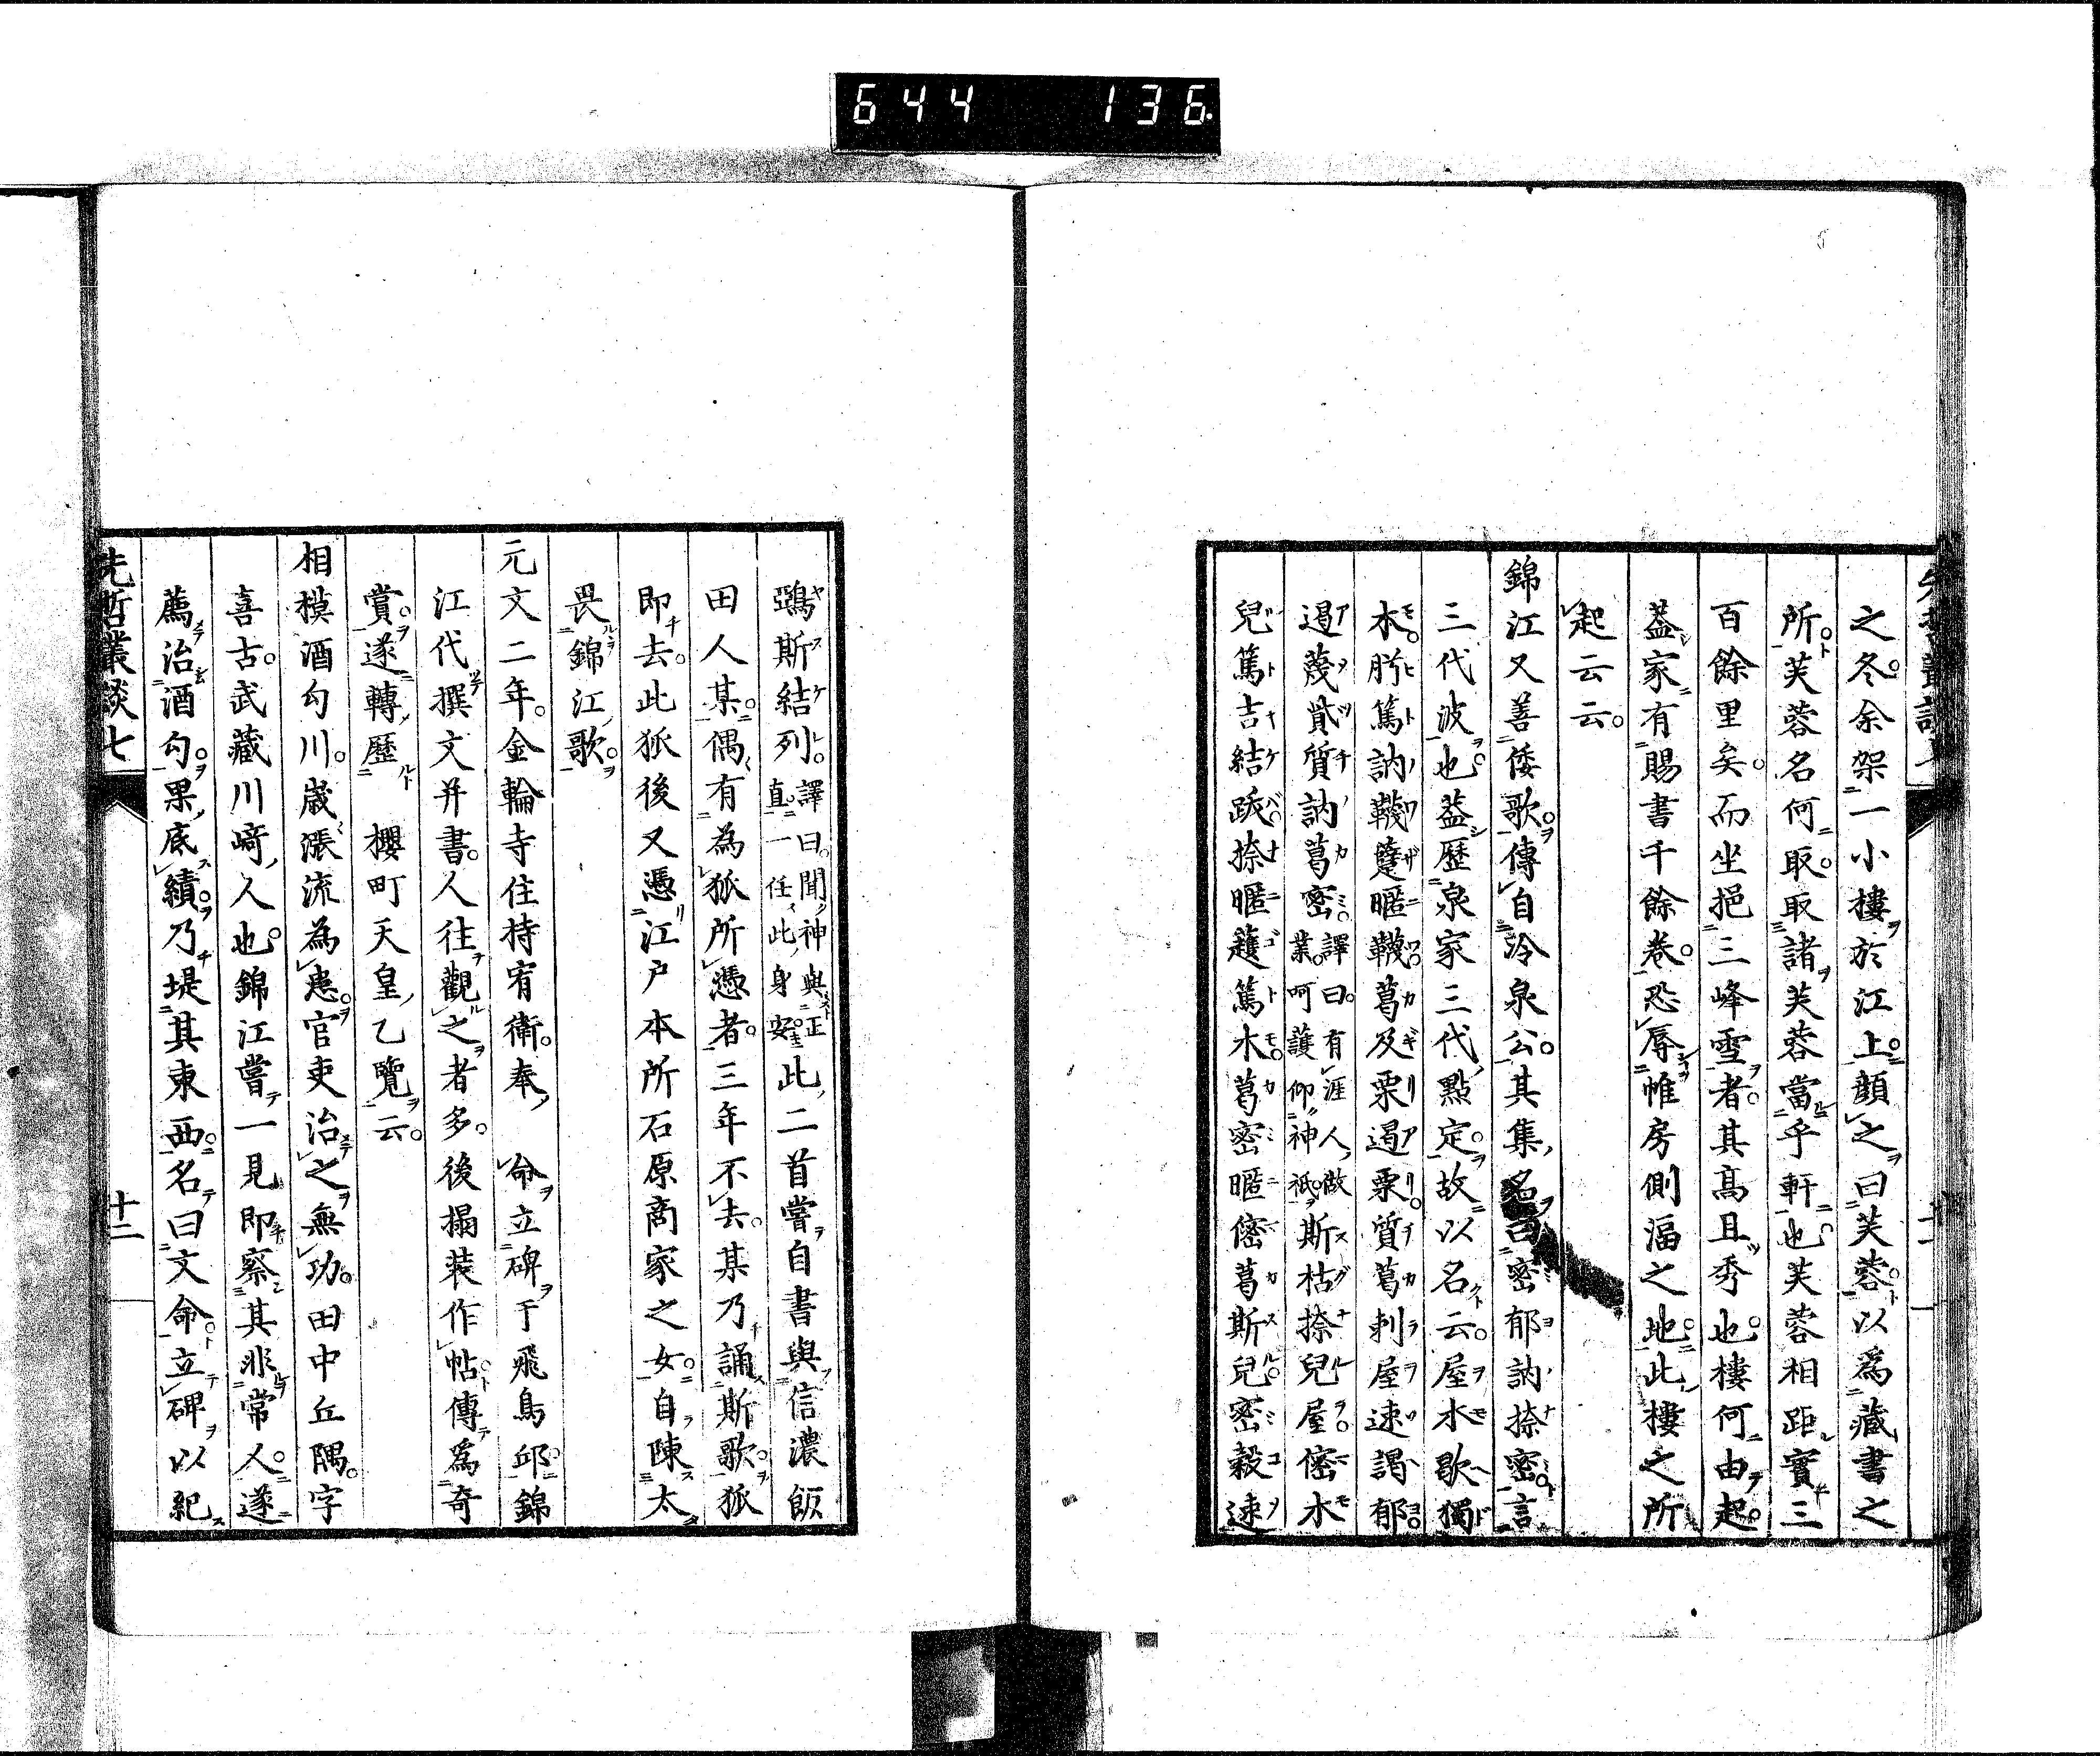 644 136.
之冬。余架一小樓於江上。顔之曰芙蓉。以爲藏書之
所。芙蓉名何取。取諸芙蓉當乎軒也。芙蓉相距實三
百餘里矣。而坐挹三峰雪者。其髙且秀也。樓何由起。
葢家有賜書千餘卷。恐辱帷房側湢之地。此樓之所
起云云。
錦江又善倭歌。傳自冷泉公。其集名曰密郁訥捺密。言
三代波也。葢歷泉家三代點定。故以名云。屋木歇獨
木。肹篤訥韈蹔暱韈。葛及栗遏栗。質葛剌屋速謁郁。
遏蔑貲質訥葛密。譯曰。有涯人做業。呵護仰神祇。斯枯捺兒屋。密木
兒篤吉結跋捺暱護篤木。葛密暱密葛斯兒密穀速
鵶斯結列。譯曰。聞神與正直。一任此身安。此二首嘗自書與信濃飯
田人某。偶有為狐所憑者。三年不去。某乃誦斯歌。狐
即去。此狐後又憑江戸本所石原商家之女。自陳太
畏錦江歌。
元文二年。金輪寺住持宥衛。奉 命立碑于飛鳥邱。錦
江代撰文并書。人往觀之者多。後搨装作帖。傳爲奇
賞。遂轉歷 櫻町天皇乙覽云。
相模酒勾川。歲漲流為患。官吏治之無功。田中丘隅。字
喜古。武藏川﨑人也。錦江嘗一見即察其非常人。遂
薦治酒勾。果底績。乃堤其東西。名曰文命。立碑以紀
先哲叢談七
十二